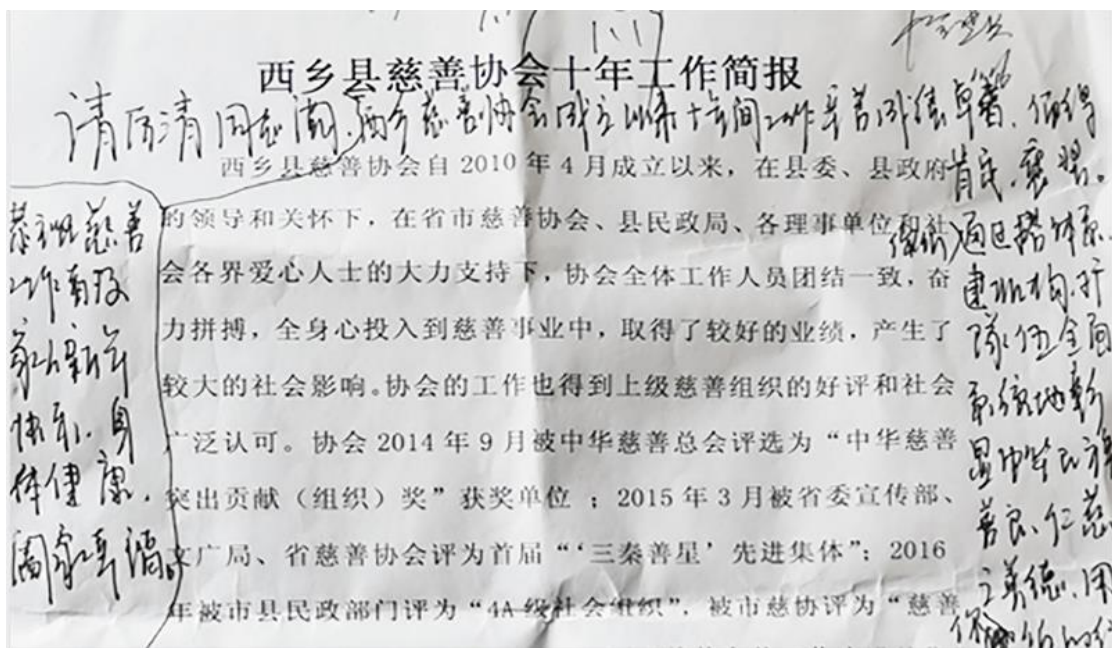 西乡县慈善协会十年工作简报
请历清同志阅。西乡慈善协会成立以来十年间工作年善成绩卓著，值得
肯定、褒奖。
西乡县慈善协会自 2010 年 4 月成立以来，在县委、县政府
的领导和关怀下，在省市慈善协会、县民政局、各理事单位和社
会各界爱心人士的大力支持下，协会全体工作人员团结一致，奋
力拼搏，全身心投入到慈善事业中，取得了较好的业绩，产生了
较大的社会影响。协会的工作也得到上级慈善组织的好评和社会
广泛认可。协会 2014 年 9 月被中华慈善总会评选为“中华慈善
突出贡献（组织）奖”获奖单位 ；2015 年 3 月被省委宣传部、
文广局、省慈善协会评为首届“‘三秦善星’先进集体”；2016
年被市县民政部门评为“4A 级社会组织”，被市慈协评为“慈善
慈善
工作
新年
快乐、身
体健康，
阖家幸福
通过
建机构、扩
队伍全面
系统地彰
显中华民族
善良、仁慈
之美德、用